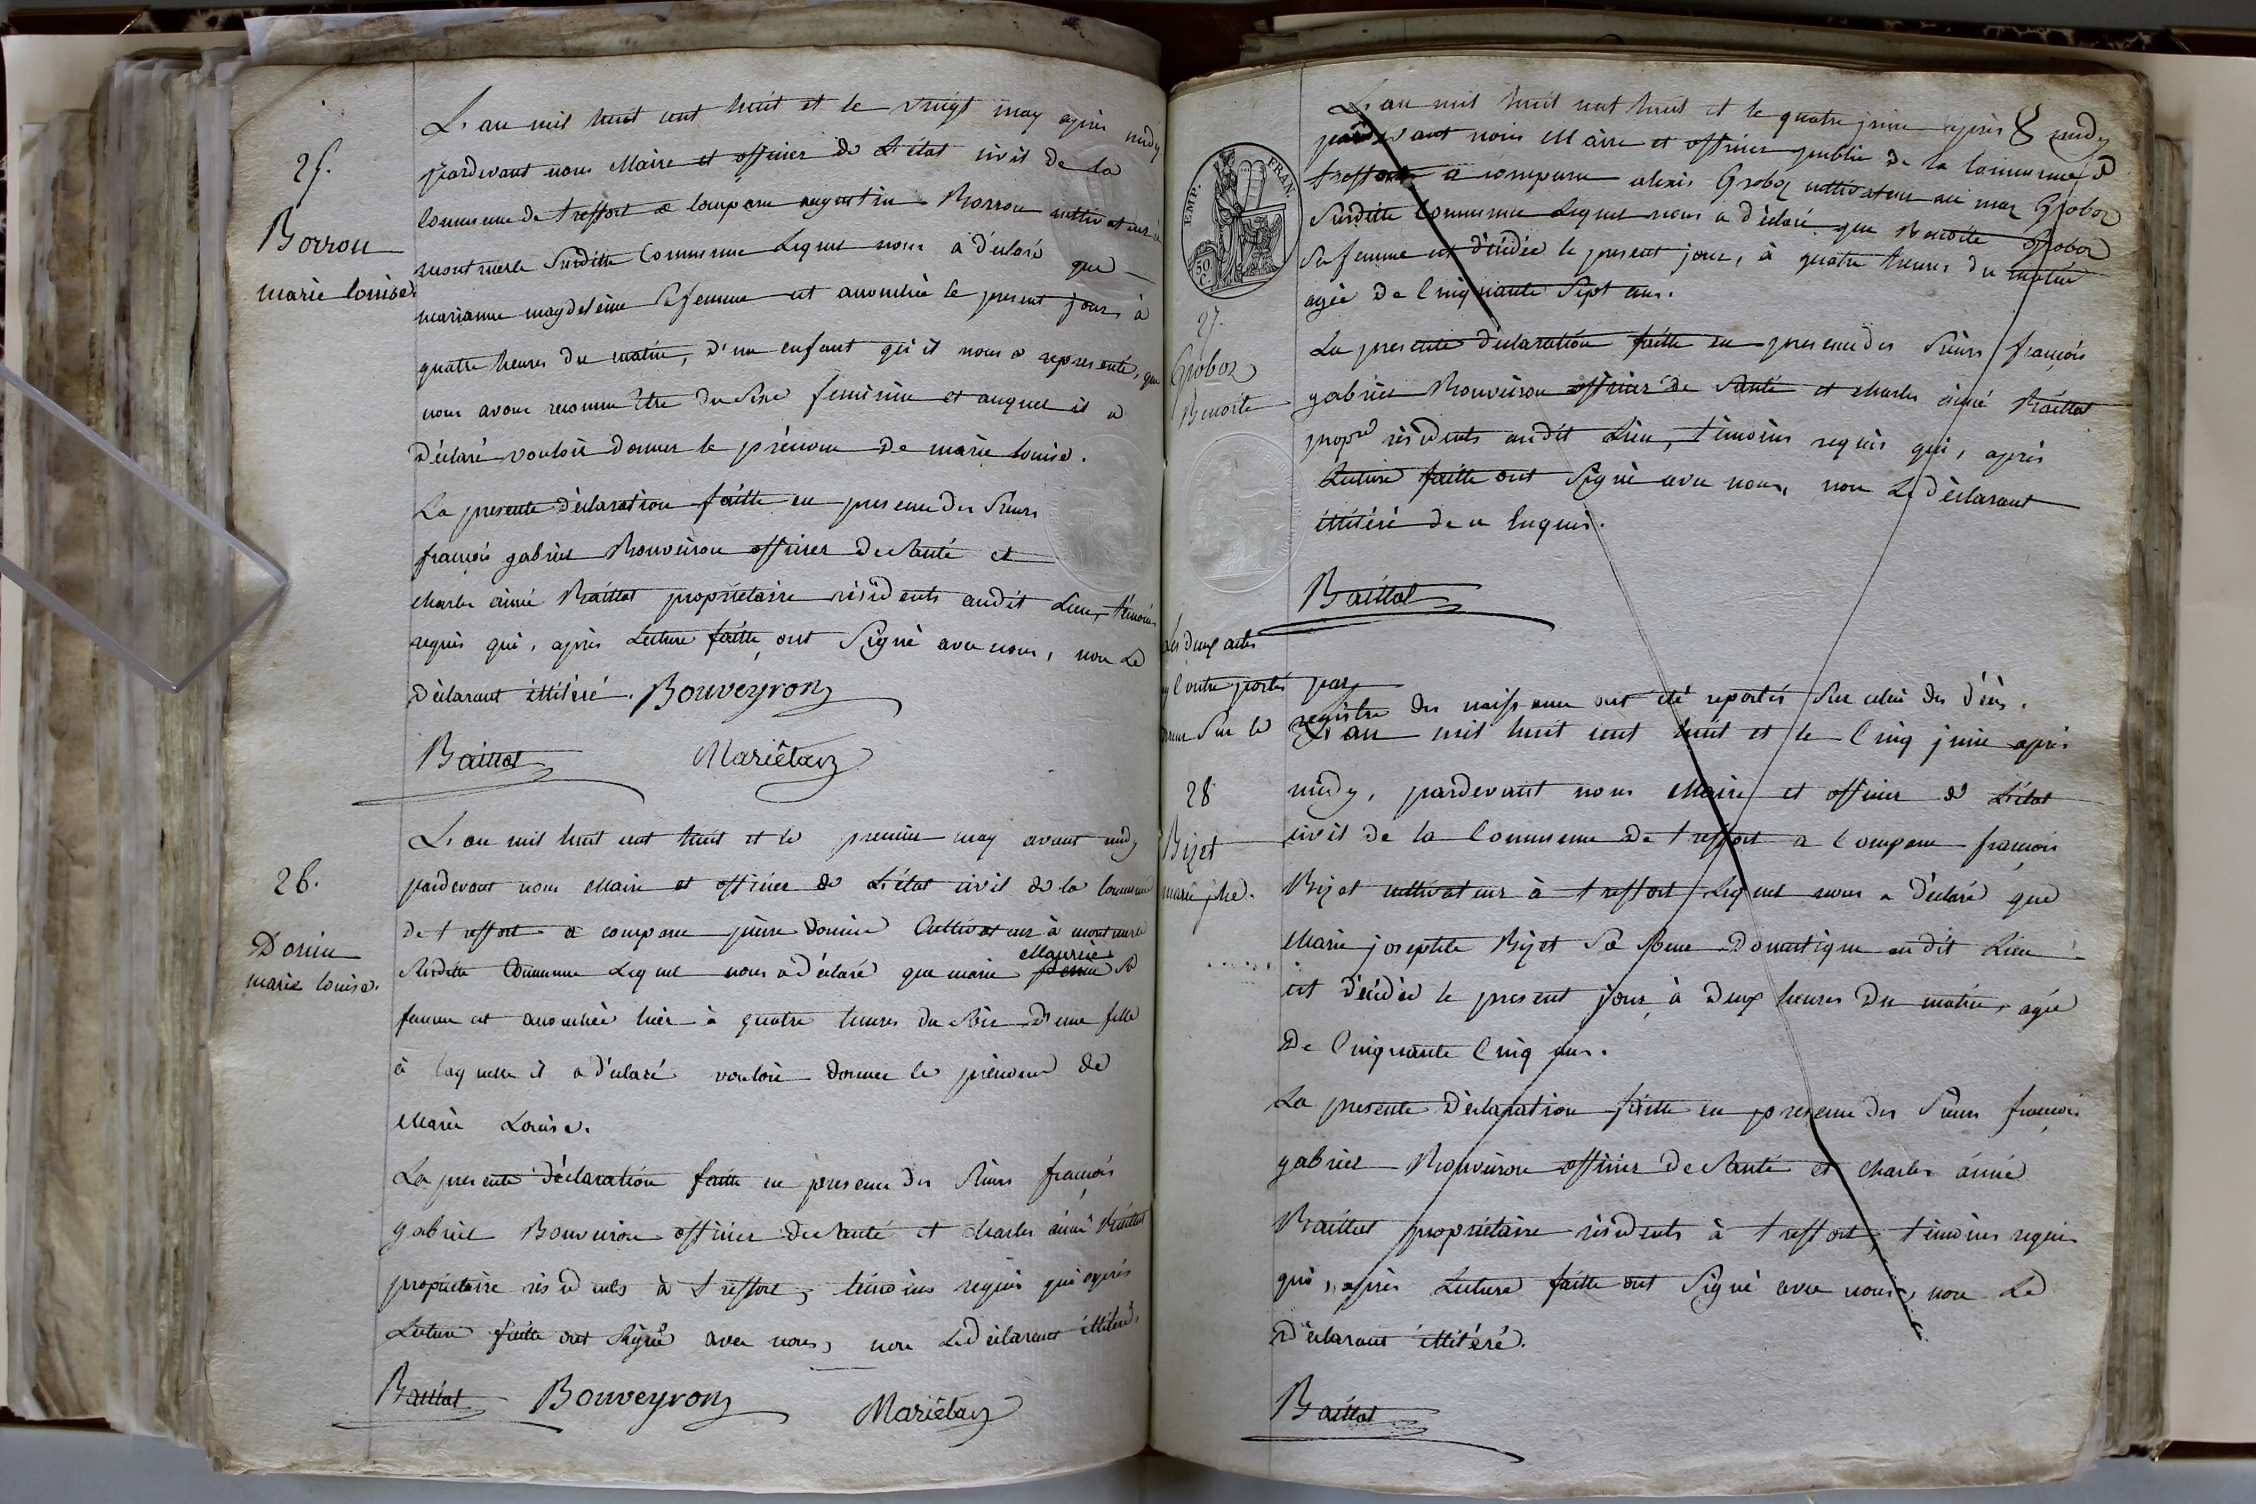 25.
Borron
marie louise
L'an mil huit cent huit et le vingt may après midy
pardevant nous Maire et officier de L'état civil de la
Commune de treffort a Comparu augustin Borron cultivateur à
montmerle Susditte Commune Lequel nous a déclaré que
marianne magdeleine Sa femme est accouchée le present jour, à
quatre heures du matin, d'un enfant qu'il nous a representé, que
nous avons reconnu être du Sexe feminin et auquel il a
déclaré vouloir donner le prénom de marie louise.
La presente déclaration faitte en presence des Sieurs
françois gabriel Bouveiron officier de Santé et
charles aimé Baillat propriétaire résidents audit Lieu, témoins
requis qui, après Lecture faitte, ont Signé avec nous, non Le
déclarant illitéré. Bouveyron
Baillat Mariétan
26.
Donin
marie louise.
L'an mil huit cent huit et le premier may avant midy
pardevant nous Maire et officier de L'état civil de la commune
de treffort a comparu pierre Donin Cultivateur à montmerle
Susditte Commune Lequel nous a déclaré que marie Sa
femme est accouchée hier à quatre heures du Soir d'une fille
à laquelle il a déclaré vouloir donner le prénom de
Marie Louise.
La presente déclaration faitte en presence des Sieurs françois
gabriel Bouveiron officier de Santé et charles aimé Baillat
propriétaire résidents à treffort, témoins requis qui après
Lecture faitte ont Signé avec nous, non Le déclarant illitéré.
Baillat Bouveyron Mariétan
EMP. FRAN.
50 C.
L'an mil huit cent huit et le quatre juin après midy
pardevant nous Maire et officier public de la Commune de
treffort a comparu alexis Groboz cultivateur au maz Groboz
Susditte Commune Lequel nous a déclaré que Benoite Groboz
Sa femme est décédée le present jour, à quatre heures du matin
agée de Cinquante Sept ans.
27.
Groboz
Benoite
La presente déclaration faitte en presence des Sieurs françois
gabriel Bouveiron officier de Santé et charles aimé Baillat
propre résidents audit Lieu, témoins requis qui, après
Lecture faitte ont Signé avec nous, non Le déclarant
illitéré de ce Enquis.
Baillat
Les deux actes
cy contre portés par
erreur Sur le registre des naissance ont été reportés Sur celui des décès.
28
Bizet
marie jphe.
L'an mil huit cent huit et le Cinq juin après
midy, pardevant nous Maire et officier de L'état
civil de la Commune de treffort a Comparu françois
Bizet cultivateur à treffort Lequel nous a déclaré que
Marie josephte Bizet Sa Soeur Domestique audit Lieu
est décédée le present jour, à deux heures du matin, agée
de Cinquante Cinq ans.
La presente déclaration faitte en presence des Sieurs françois
gabriel Bouveiron officier de Santé et charles aimé
Baillat propriétaire résidents à treffort, témoins requis
qui, après Lecture faitte ont Signé avec nous, non Le
déclarant illitéré.
Baillat